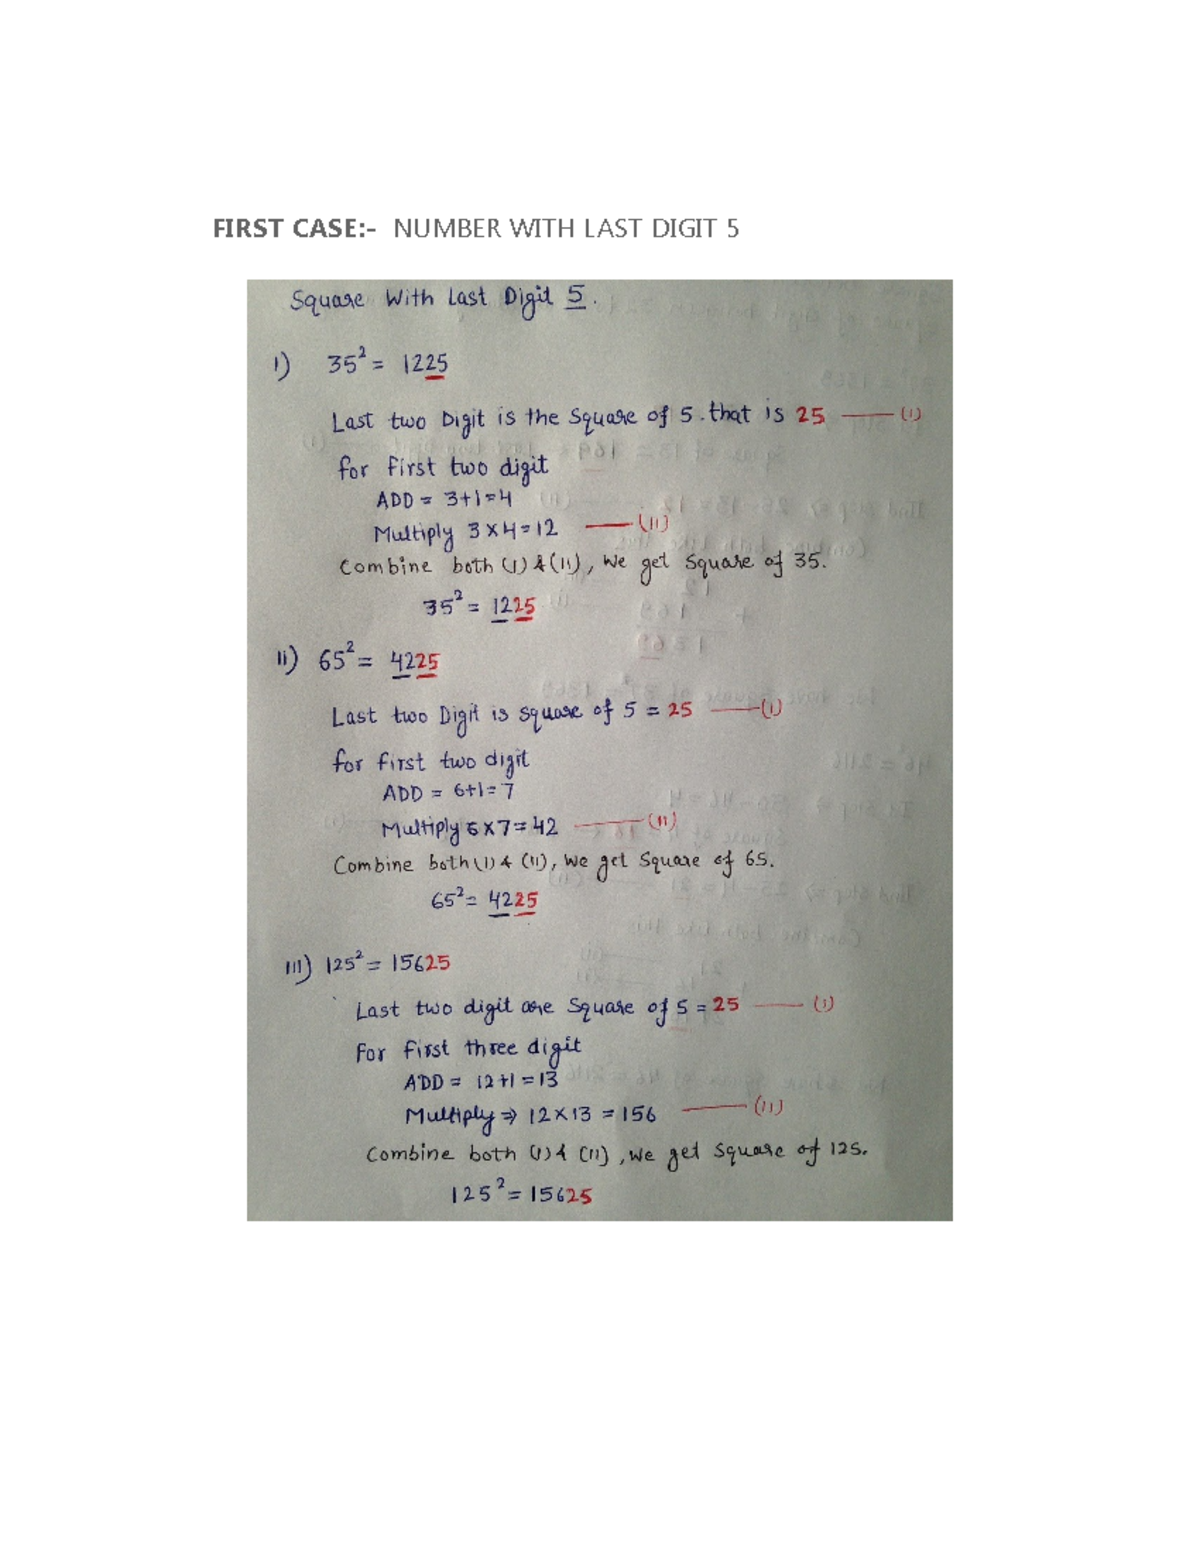 FIRST CASE:- NUMBER WITH LAST DIGIT 5
Square With Last Digit 5.
I) 35² = 1225
Last two Digit is the Square of 5. that is 25 —— (I)
for First two digit
ADD = 3+1=4
Multiply 3×4=12 —— (II)
Combine both (I) & (II), We get Square of 35.
35² = 1225
II) 65² = 4225
Last two Digit is square of 5 = 25 ——(I)
for first two digit
ADD = 6+1=7
Multiply 6×7=42 ——(II)
Combine both (I) & (II), We get Square of 65.
65² = 4225
III) 125² = 15625
Last two digit are Square of 5 = 25 —— (I)
For First three digit
ADD = 12+1=13
Multiply ⇒ 12×13 = 156 —— (II)
Combine both (I) & (II), We get Square of 125.
125² = 15625